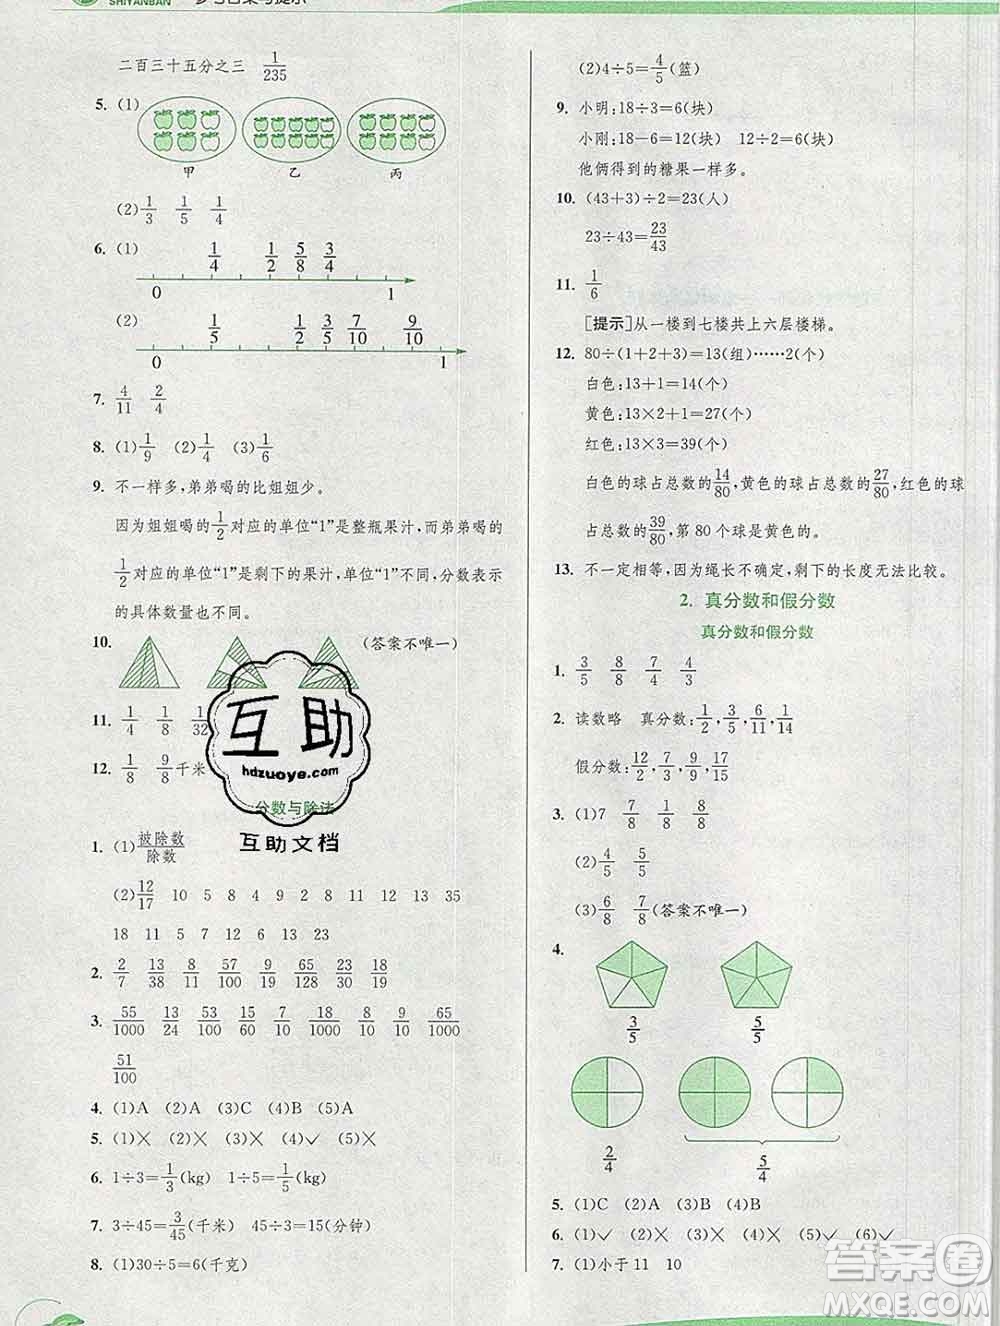 SHIYANBAN 参考答案与提示
二百三十五分之三 1/235
5. (1)
甲 乙 丙
(2) 1/3 1/5 1/4
6. (1) 1/4 1/2 5/8 3/4
0 1
(2) 1/5 1/2 3/5 7/10 9/10
0 1
7. 4/11 2/4
8. (1) 1/9 (2) 1/4 (3) 1/6
9. 不一样多,弟弟喝的比姐姐少。
因为姐姐喝的1/2对应的单位“1”是整瓶果汁,而弟弟喝的
1/2对应的单位“1”是剩下的果汁,单位“1”不同,分数表示
的具体数量也不同。
10. (答案不唯一)
11. 1/4 1/8 1/32
12. 1/8 9/8千米
互助
hdzuoye.com
互助文档
分数与除法
1. (1) 被除数/除数
(2) 12/17 10 5 8 4 9 2 11 12 13 35
18 11 15 7 6 9 13
2. 2/7 13/38 8/11 57/100 9/19 65/128 22/9 18/73
3. 55/1000 13/24 59/60 19/100 7/10 18/1000 9/10 65/1000
51/100
4. (1)A (2)A (3)C (4)B (5)A
5. (1)× (2)× (3)× (4)✓ (5)×
6. 1÷3=1/3(kg) 1÷5=1/5(kg)
7. 3÷45=3/45(千米) 45÷3=15(分钟)
8. (1)30÷5=6(千克)
(2)4÷5=4/5(篮)
9. 小明:18÷3=6(块)
小刚:18-6=12(块) 12÷2=6(块)
他俩得到的糖果一样多。
10. (43+3)÷2=23(人)
23÷43=23/43
11. 1/6
[提示]从一楼到七楼共上六层楼梯。
12. 80÷(1+2+3)=13(组)……2(个)
白色:13+1=14(个)
黄色:13×2+1=27(个)
红色:13×3=39(个)
白色的球占总数的14/80,黄色的球占总数的27/80,红色的球
占总数的39/80,第 80 个球是黄色的。
13. 不一定相等,因为绳长不确定,剩下的长度无法比较。
2. 真分数和假分数
真分数和假分数
1. 3/5 8/8 7/4 4/3
2. 读数略 真分数:1/2,3/5,6/11,1/14
假分数:12/12,7/4,9/9,17/15
3. (1)7 7/8 8/8
(2) 4/5 5/5
(3) 6/8 7/8(答案不唯一)
4.
3/5 5/5
2/4 5/4
5. (1)C (2)A (3)B (4)B
6. (1)✓ (2)× (3)× (4)✓ (5)✓ (6)✓
7. (1)小于11 10
答案圈
MXQE.COM